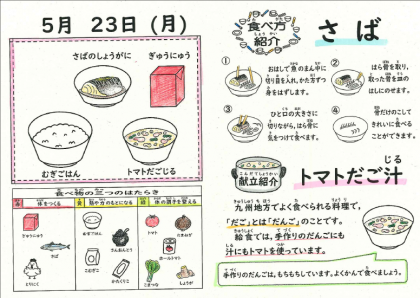 5月 23日(月)
さばのしょうがに
ぎゅうにゅう
むぎごはん
トマトだごじる
食べ物の三つのはたらき
赤
体をつくる
黄
熱や力のもとになる
緑
体の調子を整える
ぎゅうにゅう
さば
とりにく
むぎごはん
こむぎこ
さんおんとう
かたくりこ
トマト
たまねぎ
ホールトマト
こまつな
しょうが
食べ方紹介
さば
①
おはしで魚のまん中に
切り目を入れ、かた方ずつ
身をはずします。
②
はら骨を取り、
取った骨を皿の
はしにのせます。
③
ひと口の大きさに
切りながら、はら骨に
気をつけて食べます。
④
背骨だけのこして
きれいに食べる
ことができます。
こんだてしょうかい
献立紹介
じる
トマトだご汁
九州地方でよく食べられる料理で、
「だご」とは「だんご」のことです。
給食では、手作りのだんごにも
汁にもトマトを使っています。
手作りのだんごは、もちもちしています。よくかんで食べましょう。